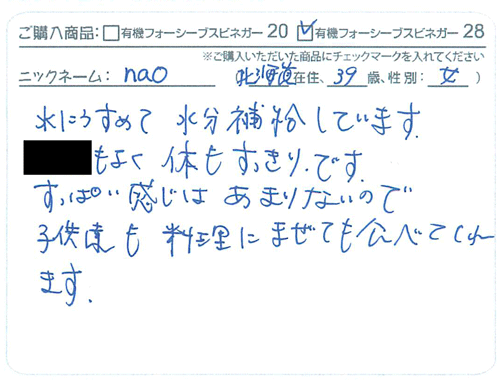 ご購入商品:□有機フォーシーブスビネガー 20 ☑有機フォーシーブスビネガー 28
※ご購入いただいた商品にチェックマークを入れてください
ニックネーム: nao (北海道在住、39歳、性別: 女 )
水にうすめて 水分補給しています.
もよく 体もすっきり.です.
すっぱい感じは あまりないので
子供達も 料理にまぜても食べてくれ
ます.